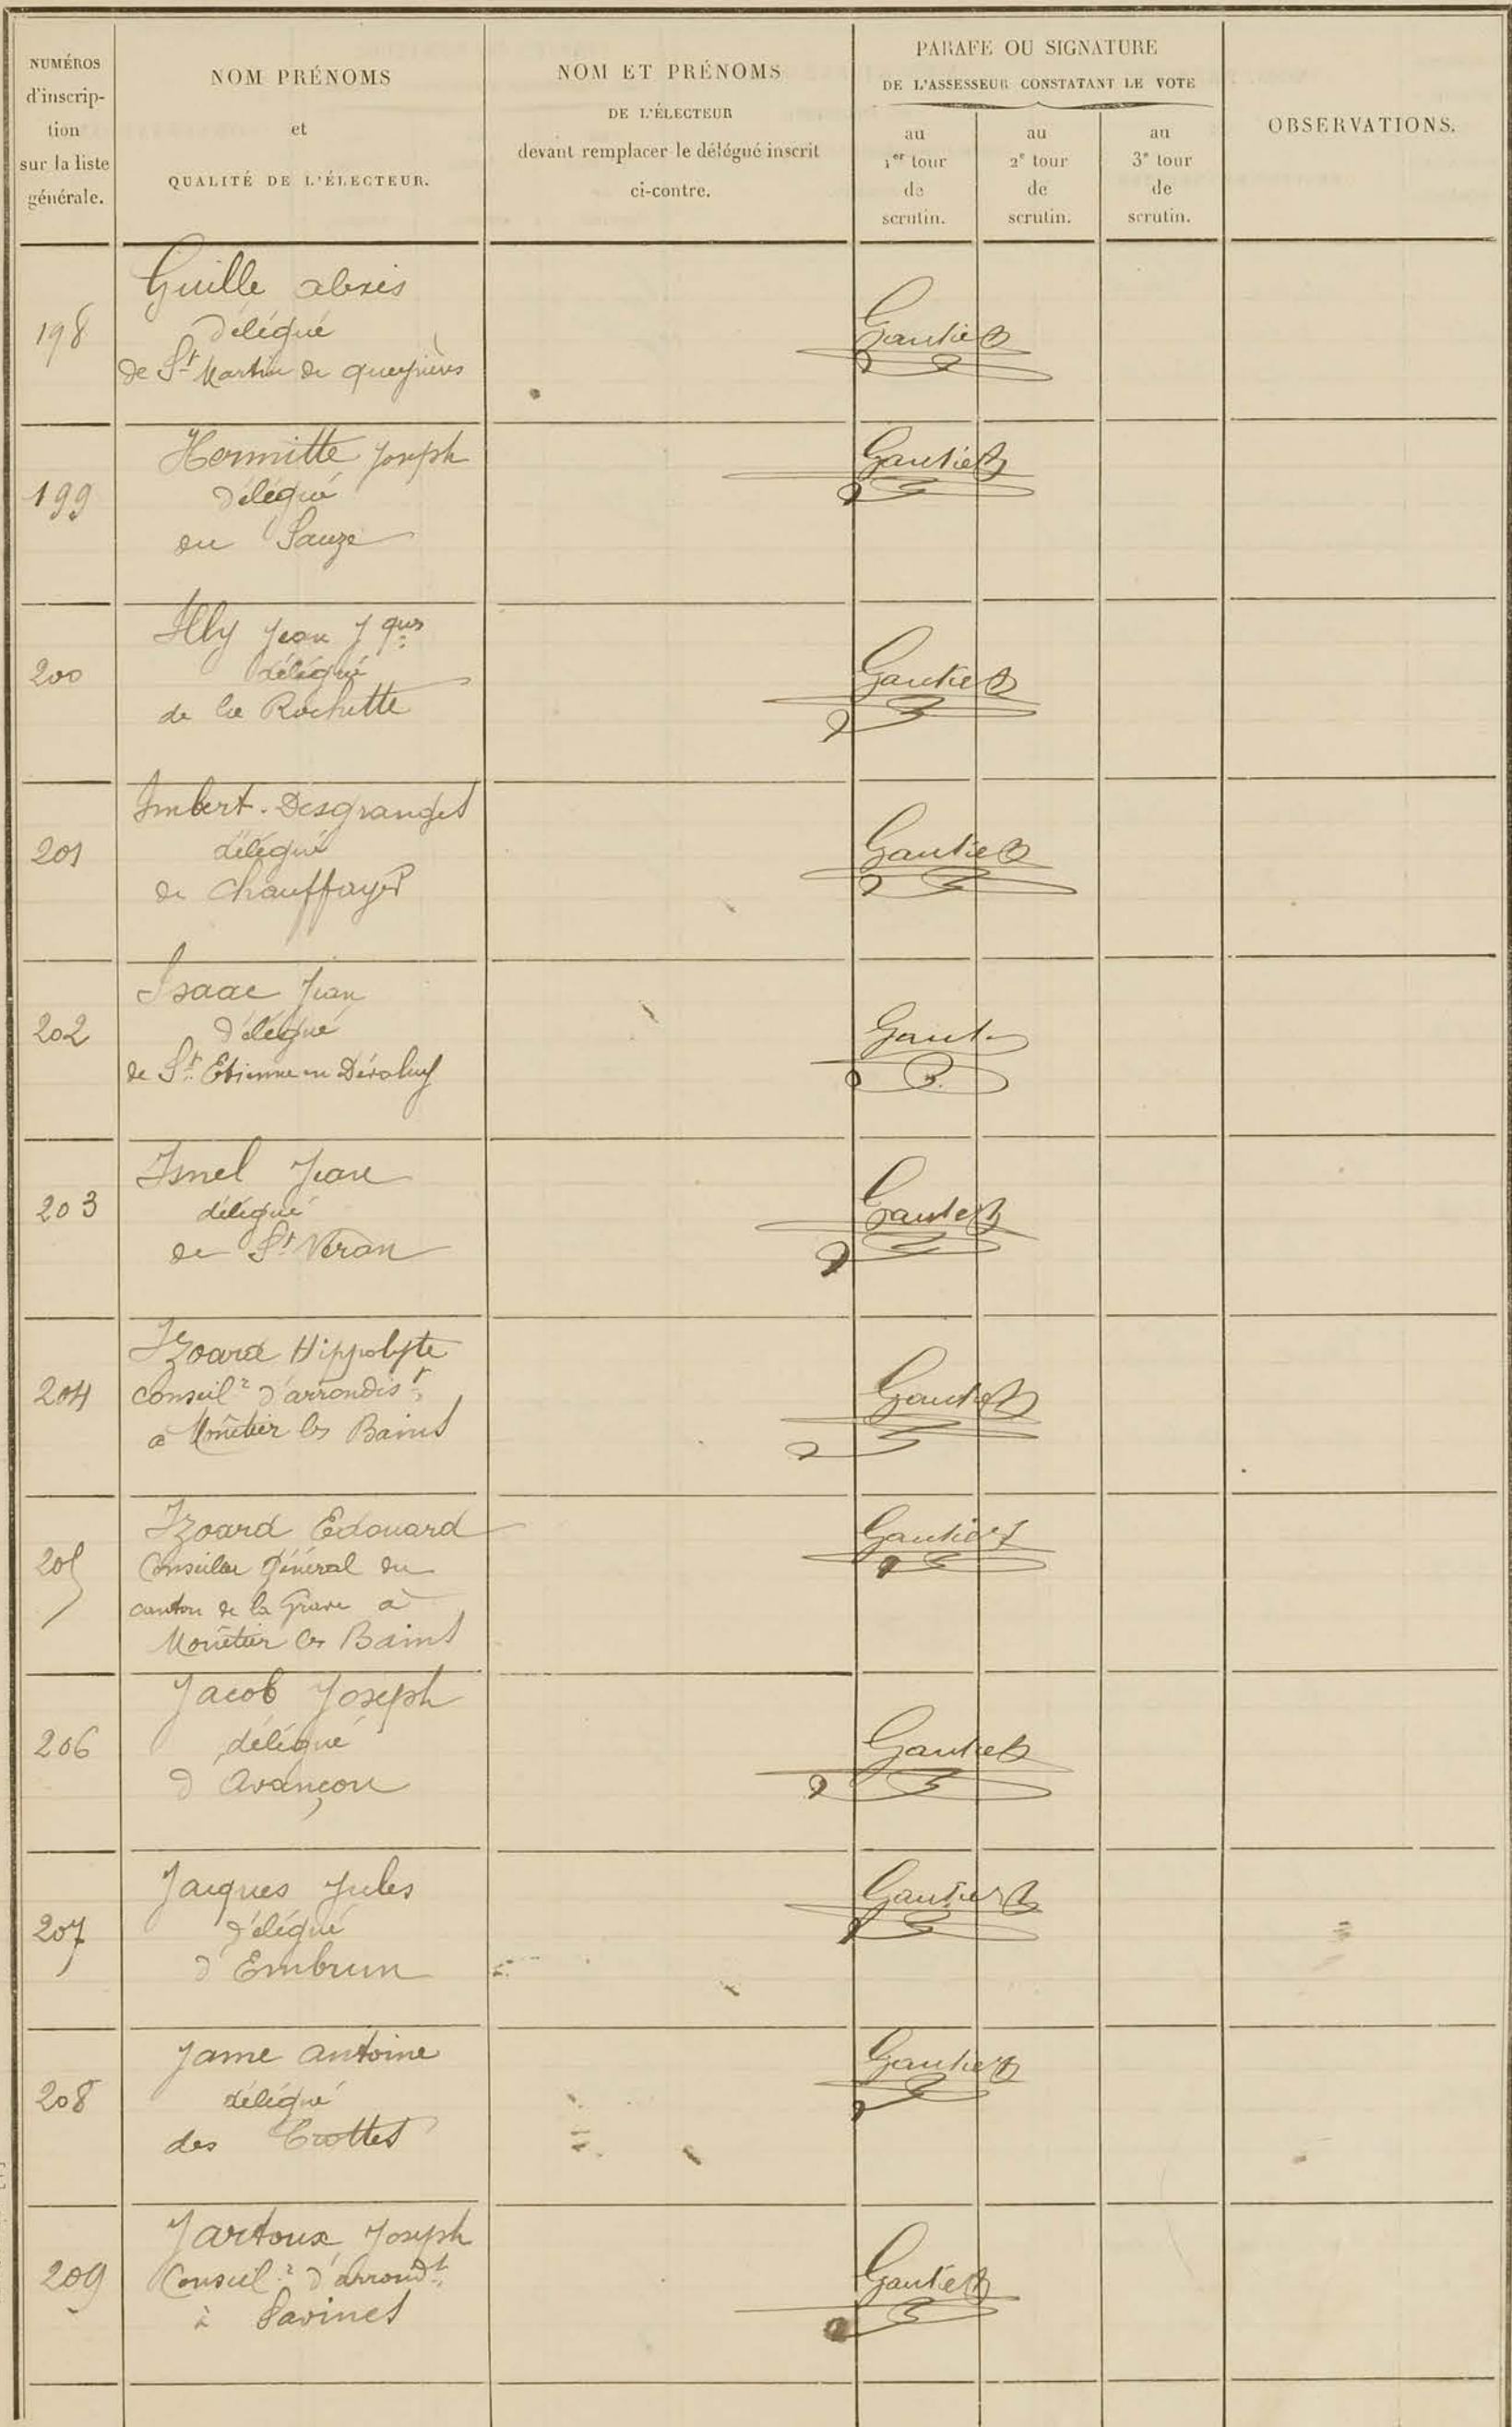 NUMÉROS
d'inscrip-
tion
sur la liste
générale.
NOM PRÉNOMS
et
QUALITÉ DE L'ÉLECTEUR.
NOM ET PRÉNOMS
DE L'ÉLECTEUR
devant remplacer le délégué inscrit
ci-contre.
PARAFE OU SIGNATURE
DE L'ASSESSEUR CONSTATANT LE VOTE
au
1er tour
de
scrutin.
au
2e tour
de
scrutin.
au
3e tour
de
scrutin.
OBSERVATIONS.
198
Guille alexis
Délégué
de St Martin de queyrières
Gautier
199
Hermitte Joseph
Délégué
du Sauze
Gautier
200
Illy Jean Jques
délégué
de la Rochette
Gautier
201
Imbert-Desgranges
délégué
de Chauffayer
Gautier
202
Isaac Jean
Délégué
de St Etienne en Dévoluy
Gaut
203
Isnel Jean
délégué
de St Véran
Gautier
204
Izoard Hippolyte
Conseilr d'arrondist
à Monêtier les Bains
Gautier
205
Izoard Edouard
Conseiller Général du
canton de la Grave à
Monêtier les Bains
Gautier
206
Jacob Joseph
délégué
d'Avançon
Gautier
207
Jacques Jules
Délégué
d'Embrun
Gautier
208
Jame antoine
délégué
des Crottes
Gautier
209
Jartoux Joseph
Conseilr d'arrondt
à Savines
Gautier